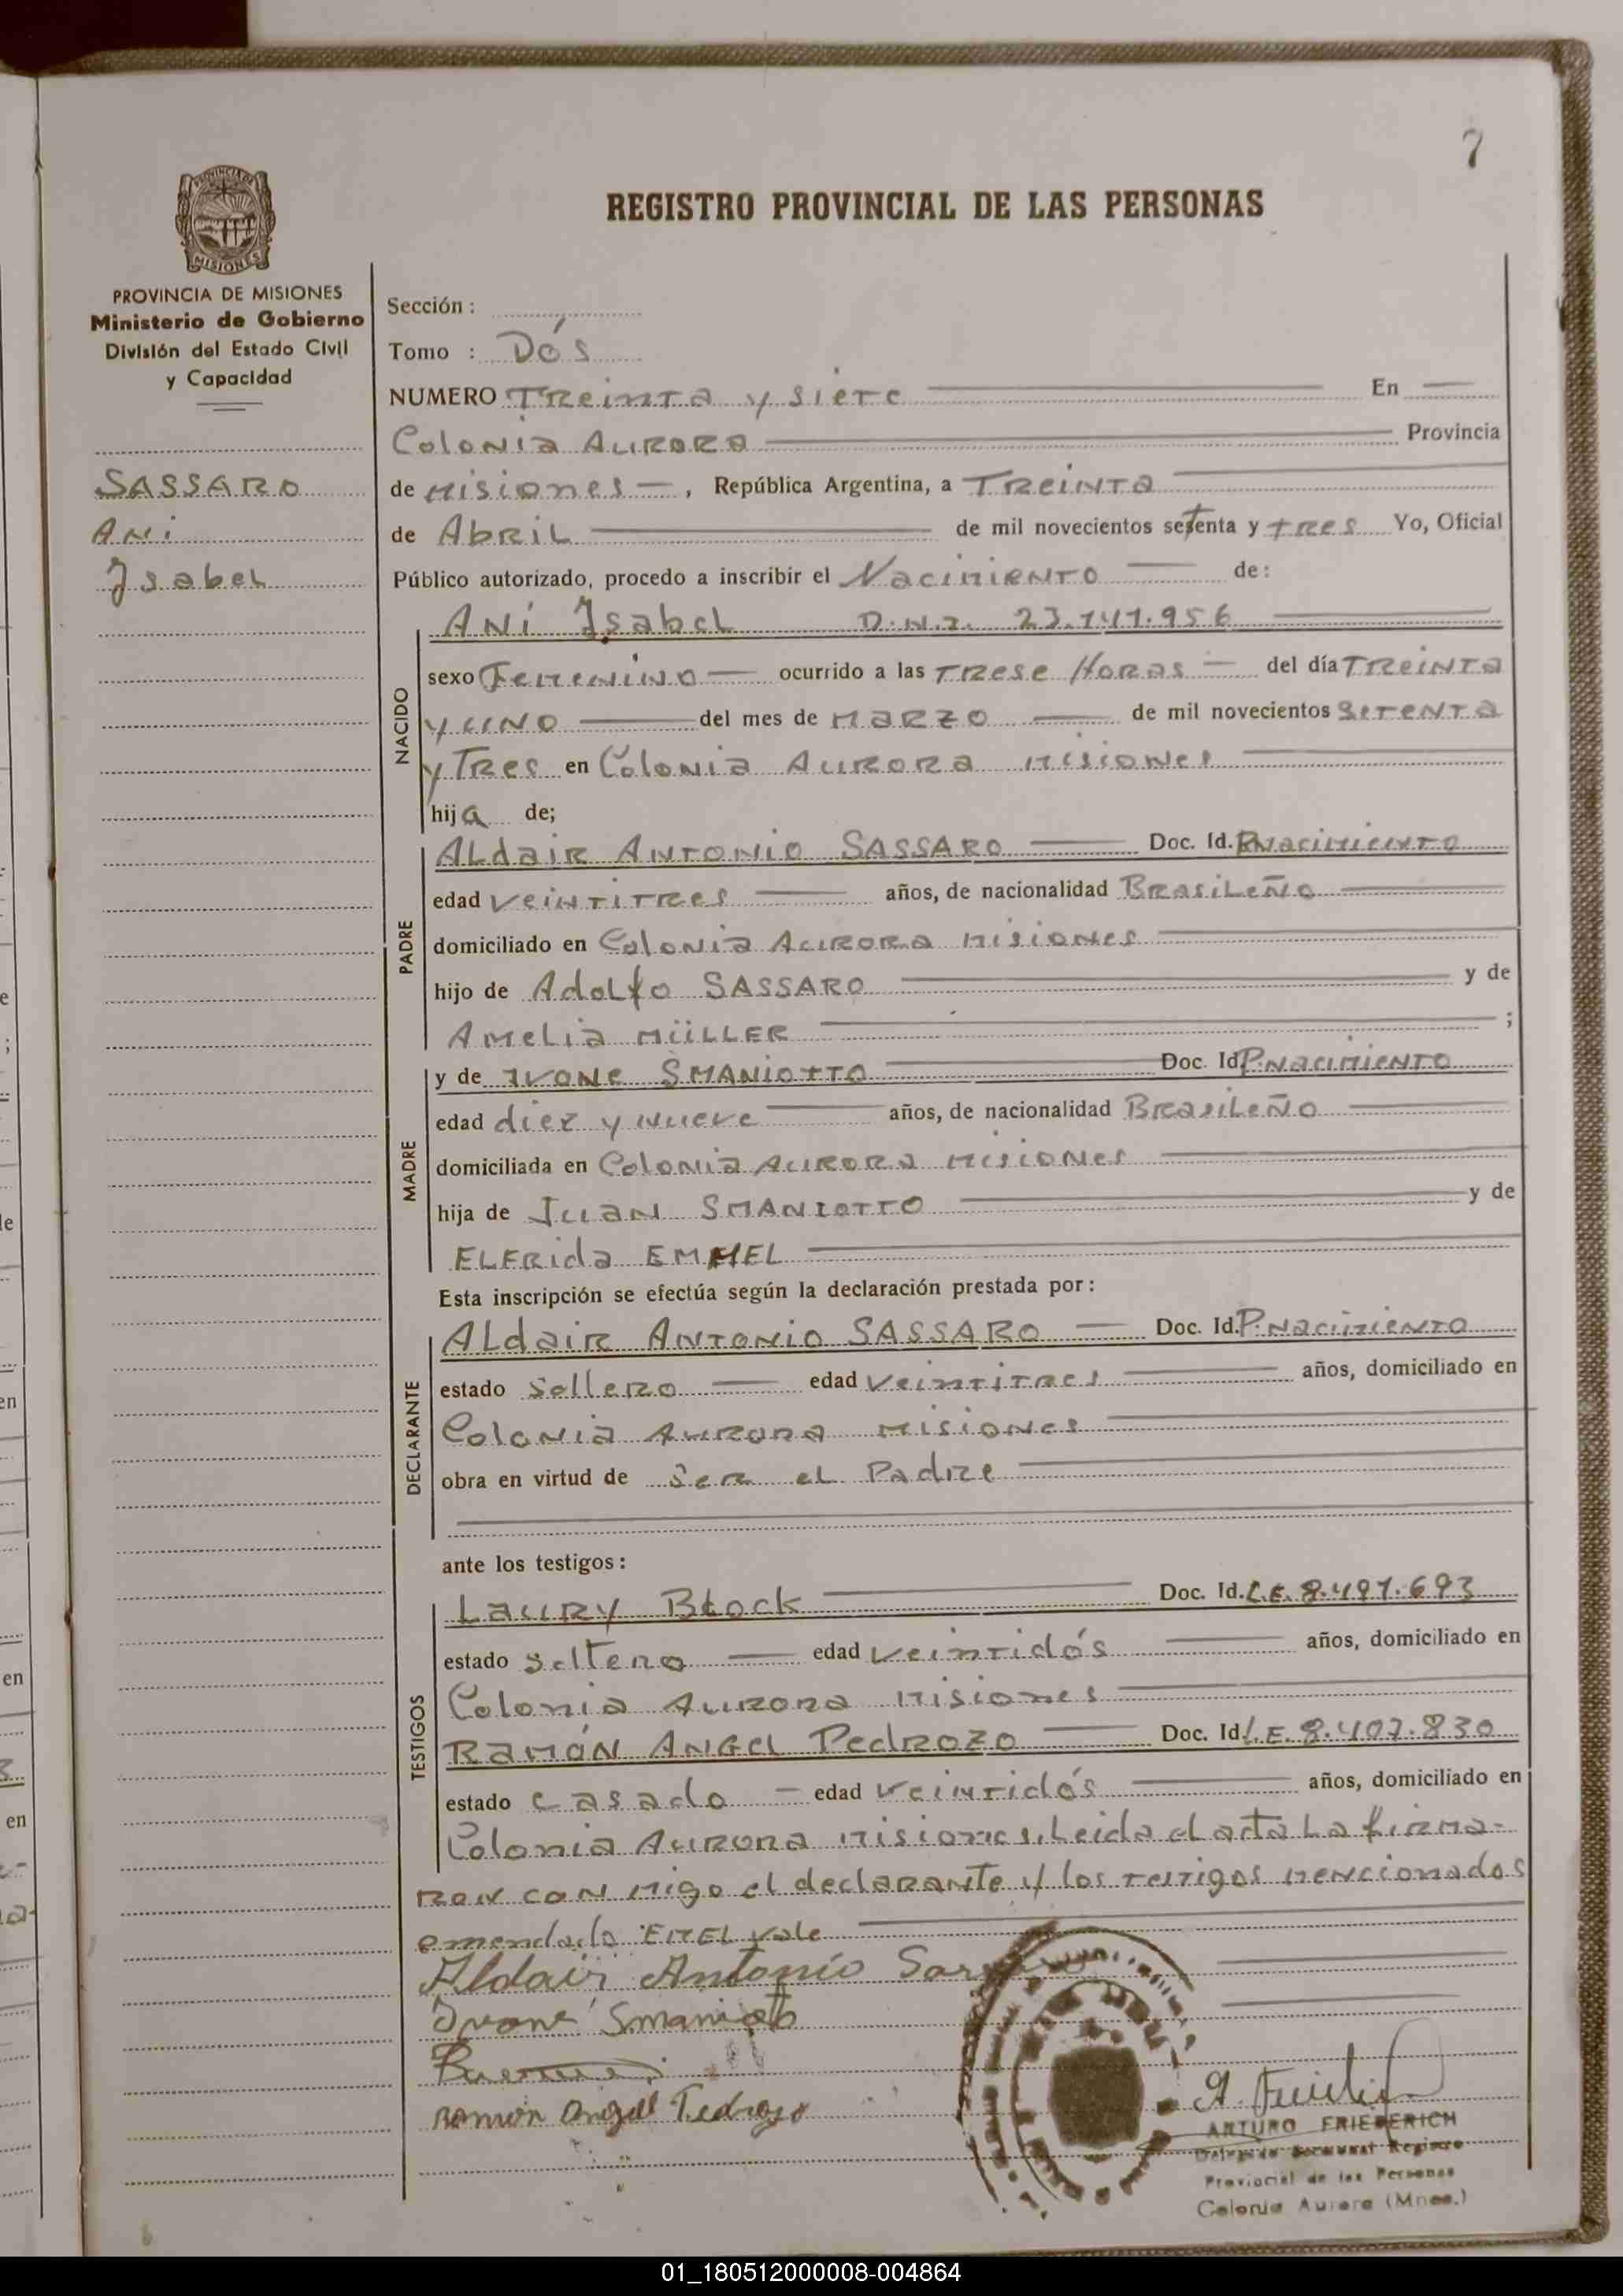 7
REGISTRO PROVINCIAL DE LAS PERSONAS
PROVINCIA DE MISIONES
MISIONES
PROVINCIA DE MISIONES
Ministerio de Gobierno
División del Estado Civil
y Capacidad
SASSARO
ANi
Isabel
Sección :
Tomo : Dós
NUMERO Treinta y siete En
Colonia Aurora Provincia
de Misiones, República Argentina, a Treinta
de Abril de mil novecientos setenta y tres Yo, Oficial
Público autorizado, procedo a inscribir el Nacimiento de:
NACIDO
ANi Isabel D.N.I. 23.141.956
sexo Femenino ocurrido a las trese Horas del día Treinta
y uno del mes de Marzo de mil novecientos setenta
y Tres en Colonia Aurora Misiones
hija de;
PADRE
Aldair Antonio SASSARO Doc. Id. P.Nacimiento
edad veintitres años, de nacionalidad Brasileño
domiciliado en Colonia Aurora Misiones
hijo de Adolfo SASSARO y de
Amelia MÜLLER ;
MADRE
y de Ivone SMANIOTTO Doc. Id P.Nacimiento
edad diez y nueve años, de nacionalidad Brasileño
domiciliada en Colonia Aurora Misiones
hija de Juan SMANIOTTO y de
ELFRida EMMEL
Esta inscripción se efectúa según la declaración prestada por:
DECLARANTE
Aldair Antonio SASSARO Doc. Id. P.Nacimiento
estado Soltero edad veintitres años, domiciliado en
Colonia Aurora Misiones
obra en virtud de Ser el Padre
ante los testigos:
TESTIGOS
Laury Block Doc. Id. L.E. 8.497.693
estado Soltero edad veintidós años, domiciliado en
Colonia Aurora Misiones
Ramón Angel Pedrozo Doc. Id L.E. 8.407.830
estado casado edad veintidós años, domiciliado en
Colonia Aurora Misiones. Leida el acta La firma-
ron con migo el declarante y los testigos mencionados
emendado EMEL vale
Aldair Antonio
Ivone Smaniotto
Ramón Angel Pedrozo
ARTURO FRIEDERICH
Registro
Provincial de las Personas
Colonia Aurora (Mnes.)
01_180512000008-004864